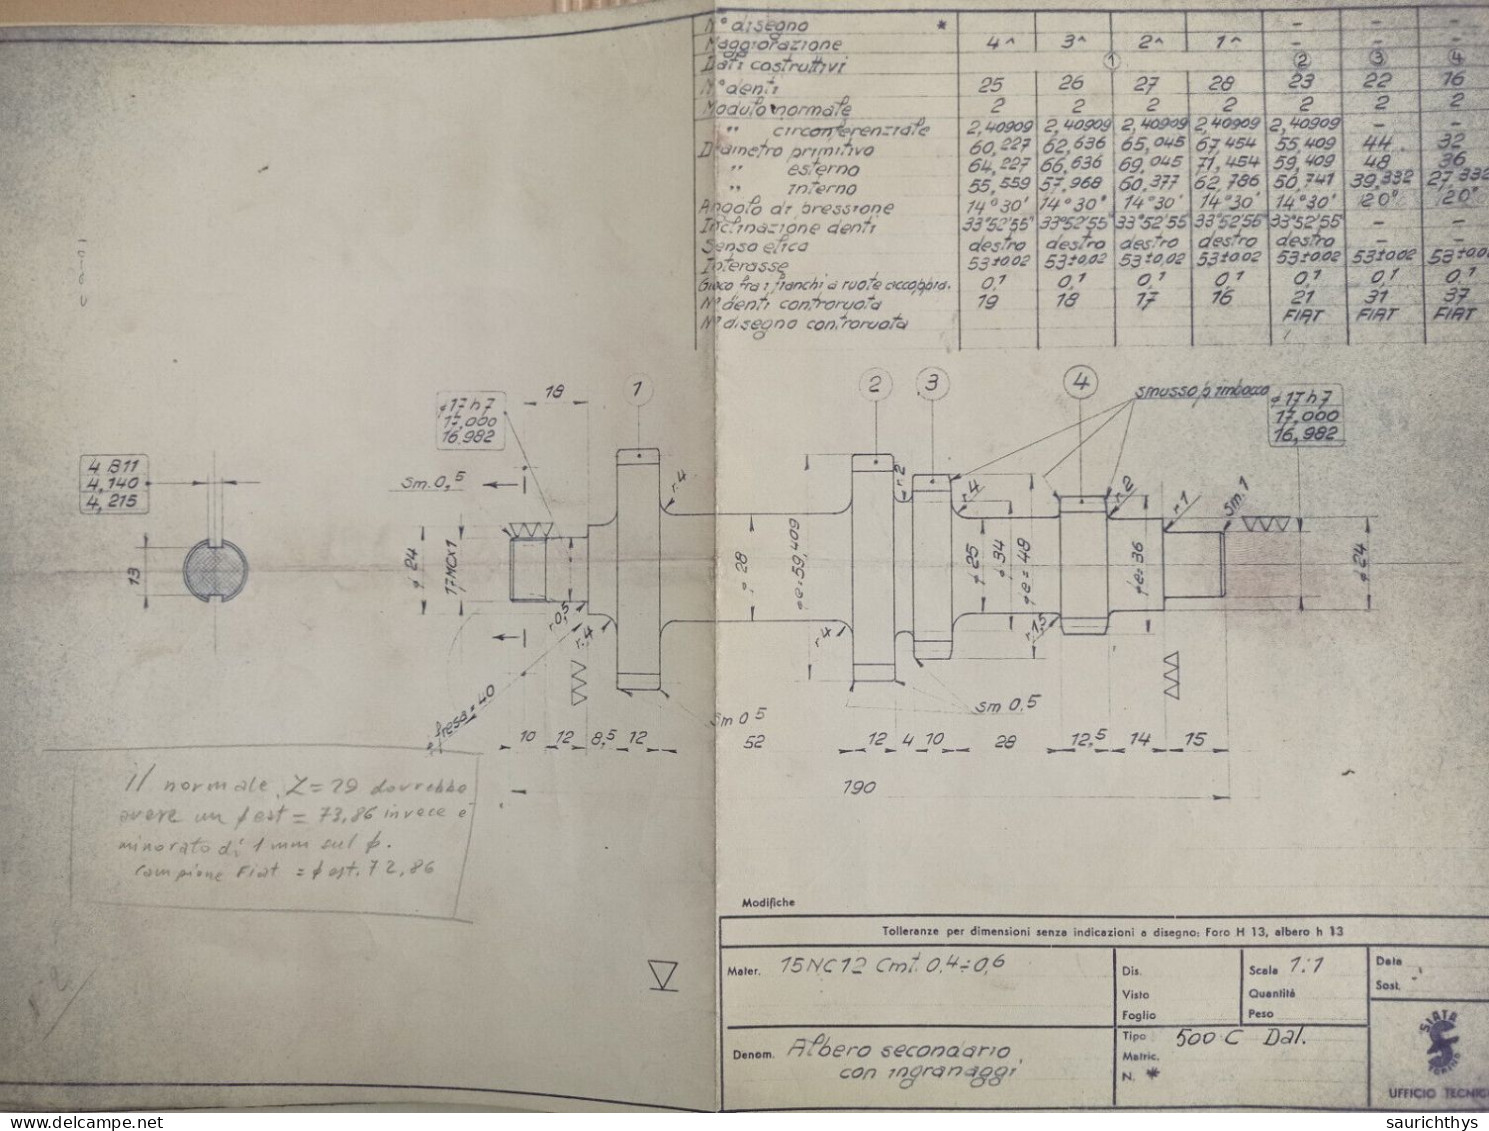 N° disegno * – – –
Maggiorazione 4^ 3^ 2^ 1^ – – –
Dati costruttivi 1 2 3 4
N° denti 25 26 27 28 23 22 16
Modulo normale 2 2 2 2 2 2 2
" circonferenziale 2,40909 2,40909 2,40909 2,40909 2,40909 – –
Diametro primitivo 60,227 62,636 65,045 67,454 55,409 44 32
" esterno 64,227 66,636 69,045 71,454 59,409 48 36
" interno 55,559 57,968 60,377 62,786 50,741 39,332 27,332
Angolo di pressione 14°30' 14°30' 14°30' 14°30' 14°30' 20° 20°
Inclinazione denti 33°52'55" 33°52'55" 33°52'55" 33°52'55" 33°52'55" – –
Senso elica destro destro destro destro destro – –
Interasse 53±0,02 53±0,02 53±0,02 53±0,02 53±0,02 53±0,02 53±0,0
Gioco fra i fianchi di ruote accoppia. 0,1 0,1 0,1 0,1 0,1 0,1 0,1
N° denti controruota 19 18 17 16 21 31 37
N° disegno controruota FIAT FIAT FIAT
18 1 2 3 4 smusso p. imbocco
φ17 h7
17,000
16,982
φ17 h7
17,000
16,982
4 B11
4,140
4,215
sm. 0,5
r. 4
r. 2
r. 4
r. 2
r. 1
sm. 1
13
φ 24
17MC×1
φ 28
φe=59,409
φ 25
φ 34
φe=48
φe=36
φ 24
r. 0,5
r. 4
r. 4
r. 1,5
φ fresa=40
sm 0,5
sm 0,5
10 12 8,5 12 52 12 4 10 28 12,5 14 15
190
il normale Z=29 dovrebbe
avere un φ est = 73,86 invece è
minorato di 1 mm sul φ.
Campione Fiat = φ est. 72,86
Modifiche
Tolleranze per dimensioni senza indicazioni a disegno: Foro H 13, albero h 13
Mater. 15NC12 Cmt. 0,4÷0,6
Dis.
Visto
Foglio
Scala 1:1
Quantità
Peso
Data
Sost.
Denom. Albero secondario
con ingranaggi
Tipo 500 C Dal.
Matric.
N. *
SIATA
TORINO
UFFICIO TECNIC
www.delcampe.net
saurichthys